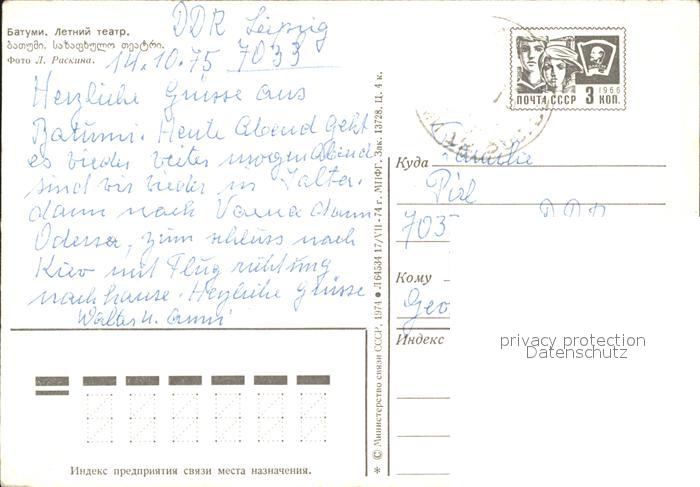 DDR Leipzig
7033
Батуми. Летний театр.
ბათუმი. საზაფხულო თეატრი.
Фото Л. Раскина.
14.10.75
Herzliche Grüsse aus
Batumi. Heute Abend geht
es wieder weiter morgen Abend
sind wir wieder in Jalta.
dann nach Varna dann
Odessa, zum schluss nach
Kiev mit Flug richtung
nachhause. Herzliche Grüsse
Walter u. Anni
Индекс предприятия связи места назначения.
* © Министерство связи СССР, 1974 ● Л 64534 17/VII-74 г. МПФГ. Зак. 13728. Ц. 4 к.
1966
ПОЧТА СССР 3 КОП.
Куда Familie
703 DDR
Кому
Geo
Индекс
privacy protection
Datenschutz